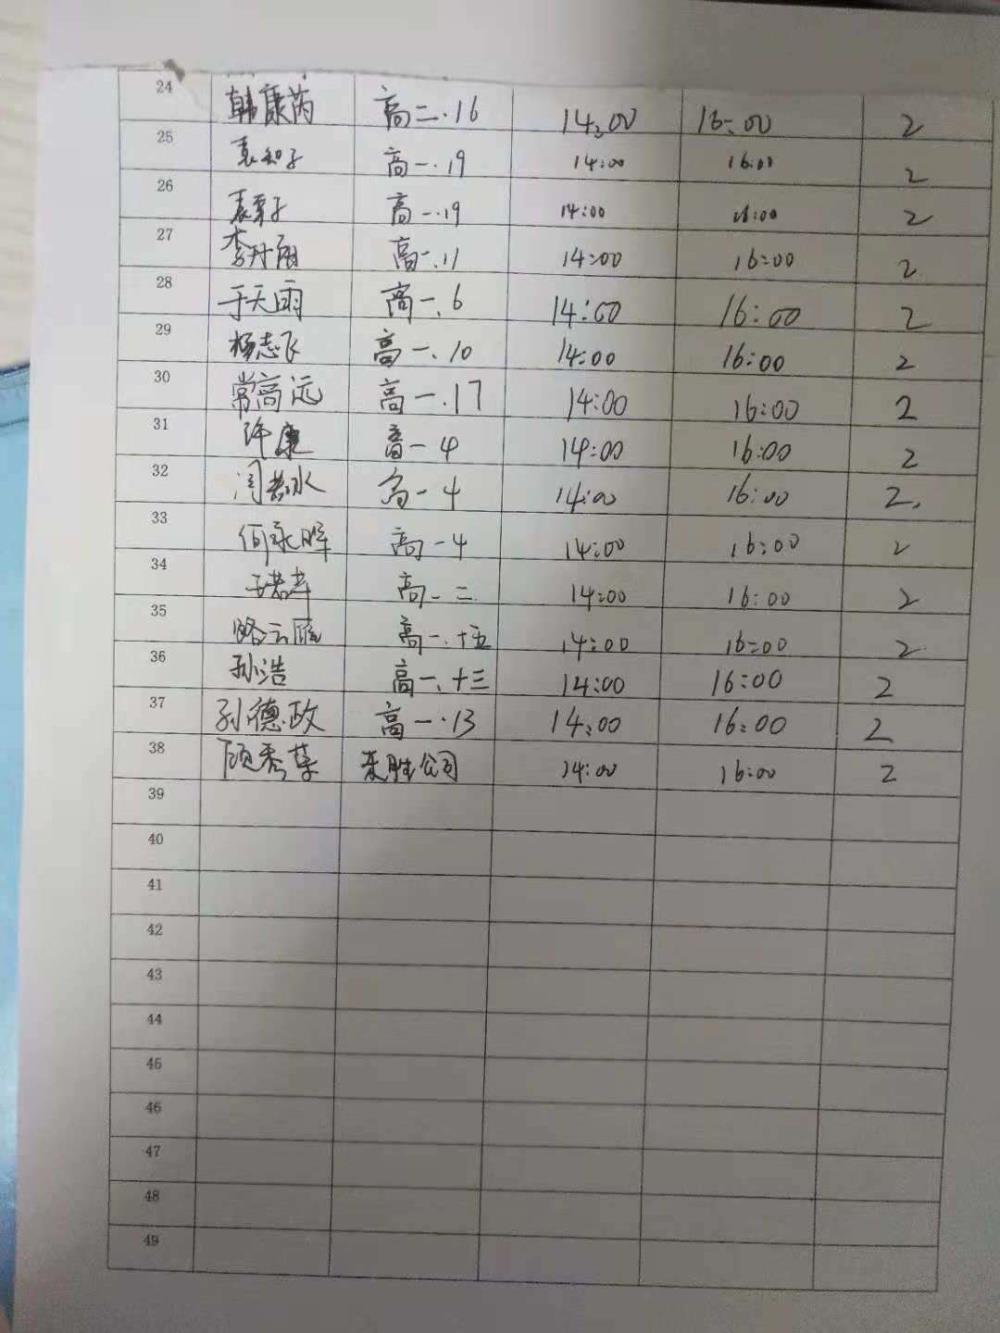 24 韩康芮 高二.16 14:00 16:00 2
25 袁知子 高一.19 14:00 16:00 2
26 袁 子 高一.19 14:00 16:00 2
27 李丹雨 高二.11 14:00 16:00 2
28 于天雨 高一.6 14:00 16:00 2
29 杨志飞 高一.10 14:00 16:00 2
30 常高远 高一.17 14:00 16:00 2
31 许康 高一4 14:00 16:00 2
32 闫若水 高一4 14:00 16:00 2.
33 何永晖 高一4 14:00 16:00 2
34 高一.二 14:00 16:00 2
35 高一.十五 14:00 16:00 2
36 孙浩 高一.十三 14:00 16:00 2
37 孙德政 高一.13 14:00 16:00 2
38 顾秀 胜公司 14:00 16:00 2
39
40
41
42
43
44
45
46
47
48
49